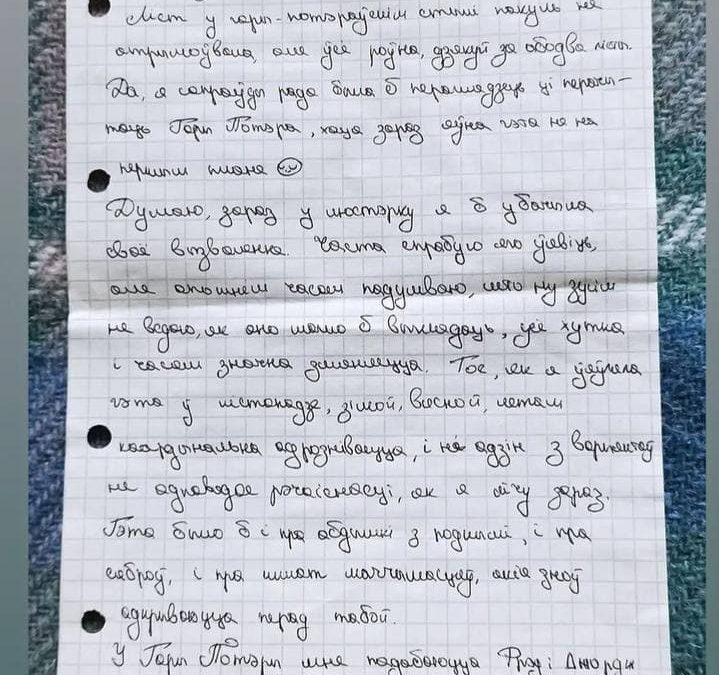 Ліст у гары-потэраўскім стылі пакуль не
атрымоўвала, але ўсё роўна, дзякуй за абодва лісты.
Да, я сапраўды рада была б пераглядзець ці перачы-
таць Гары Потэра, хаця зараз яўна гэта не на
першым плане
Думаю, зараз у люстэрку я б убачыла
сваё вызваленне. Часта спрабую яго ўявіць,
але апошнем часам падумваю, што ну зусім
не ведаю, як яно магло б выглядаць, усё хутка
і часам значна змяняецца. Тое, як я ўяўляла
гэта ў лістападзе, зімой, вясной, летам
кардынальна адрозніваецца, і не адзін з варыянтаў
не адпавядае рэчаіснасці, як я лічу зараз.
Гэта было б і пра абдымкі з роднымі, і пра
сяброў, і пра шмат магчымасцяў, якія зноў
адкрываюцца перад табой.
У Гары Потэры мне падабаюцца Фрэд і Джордж